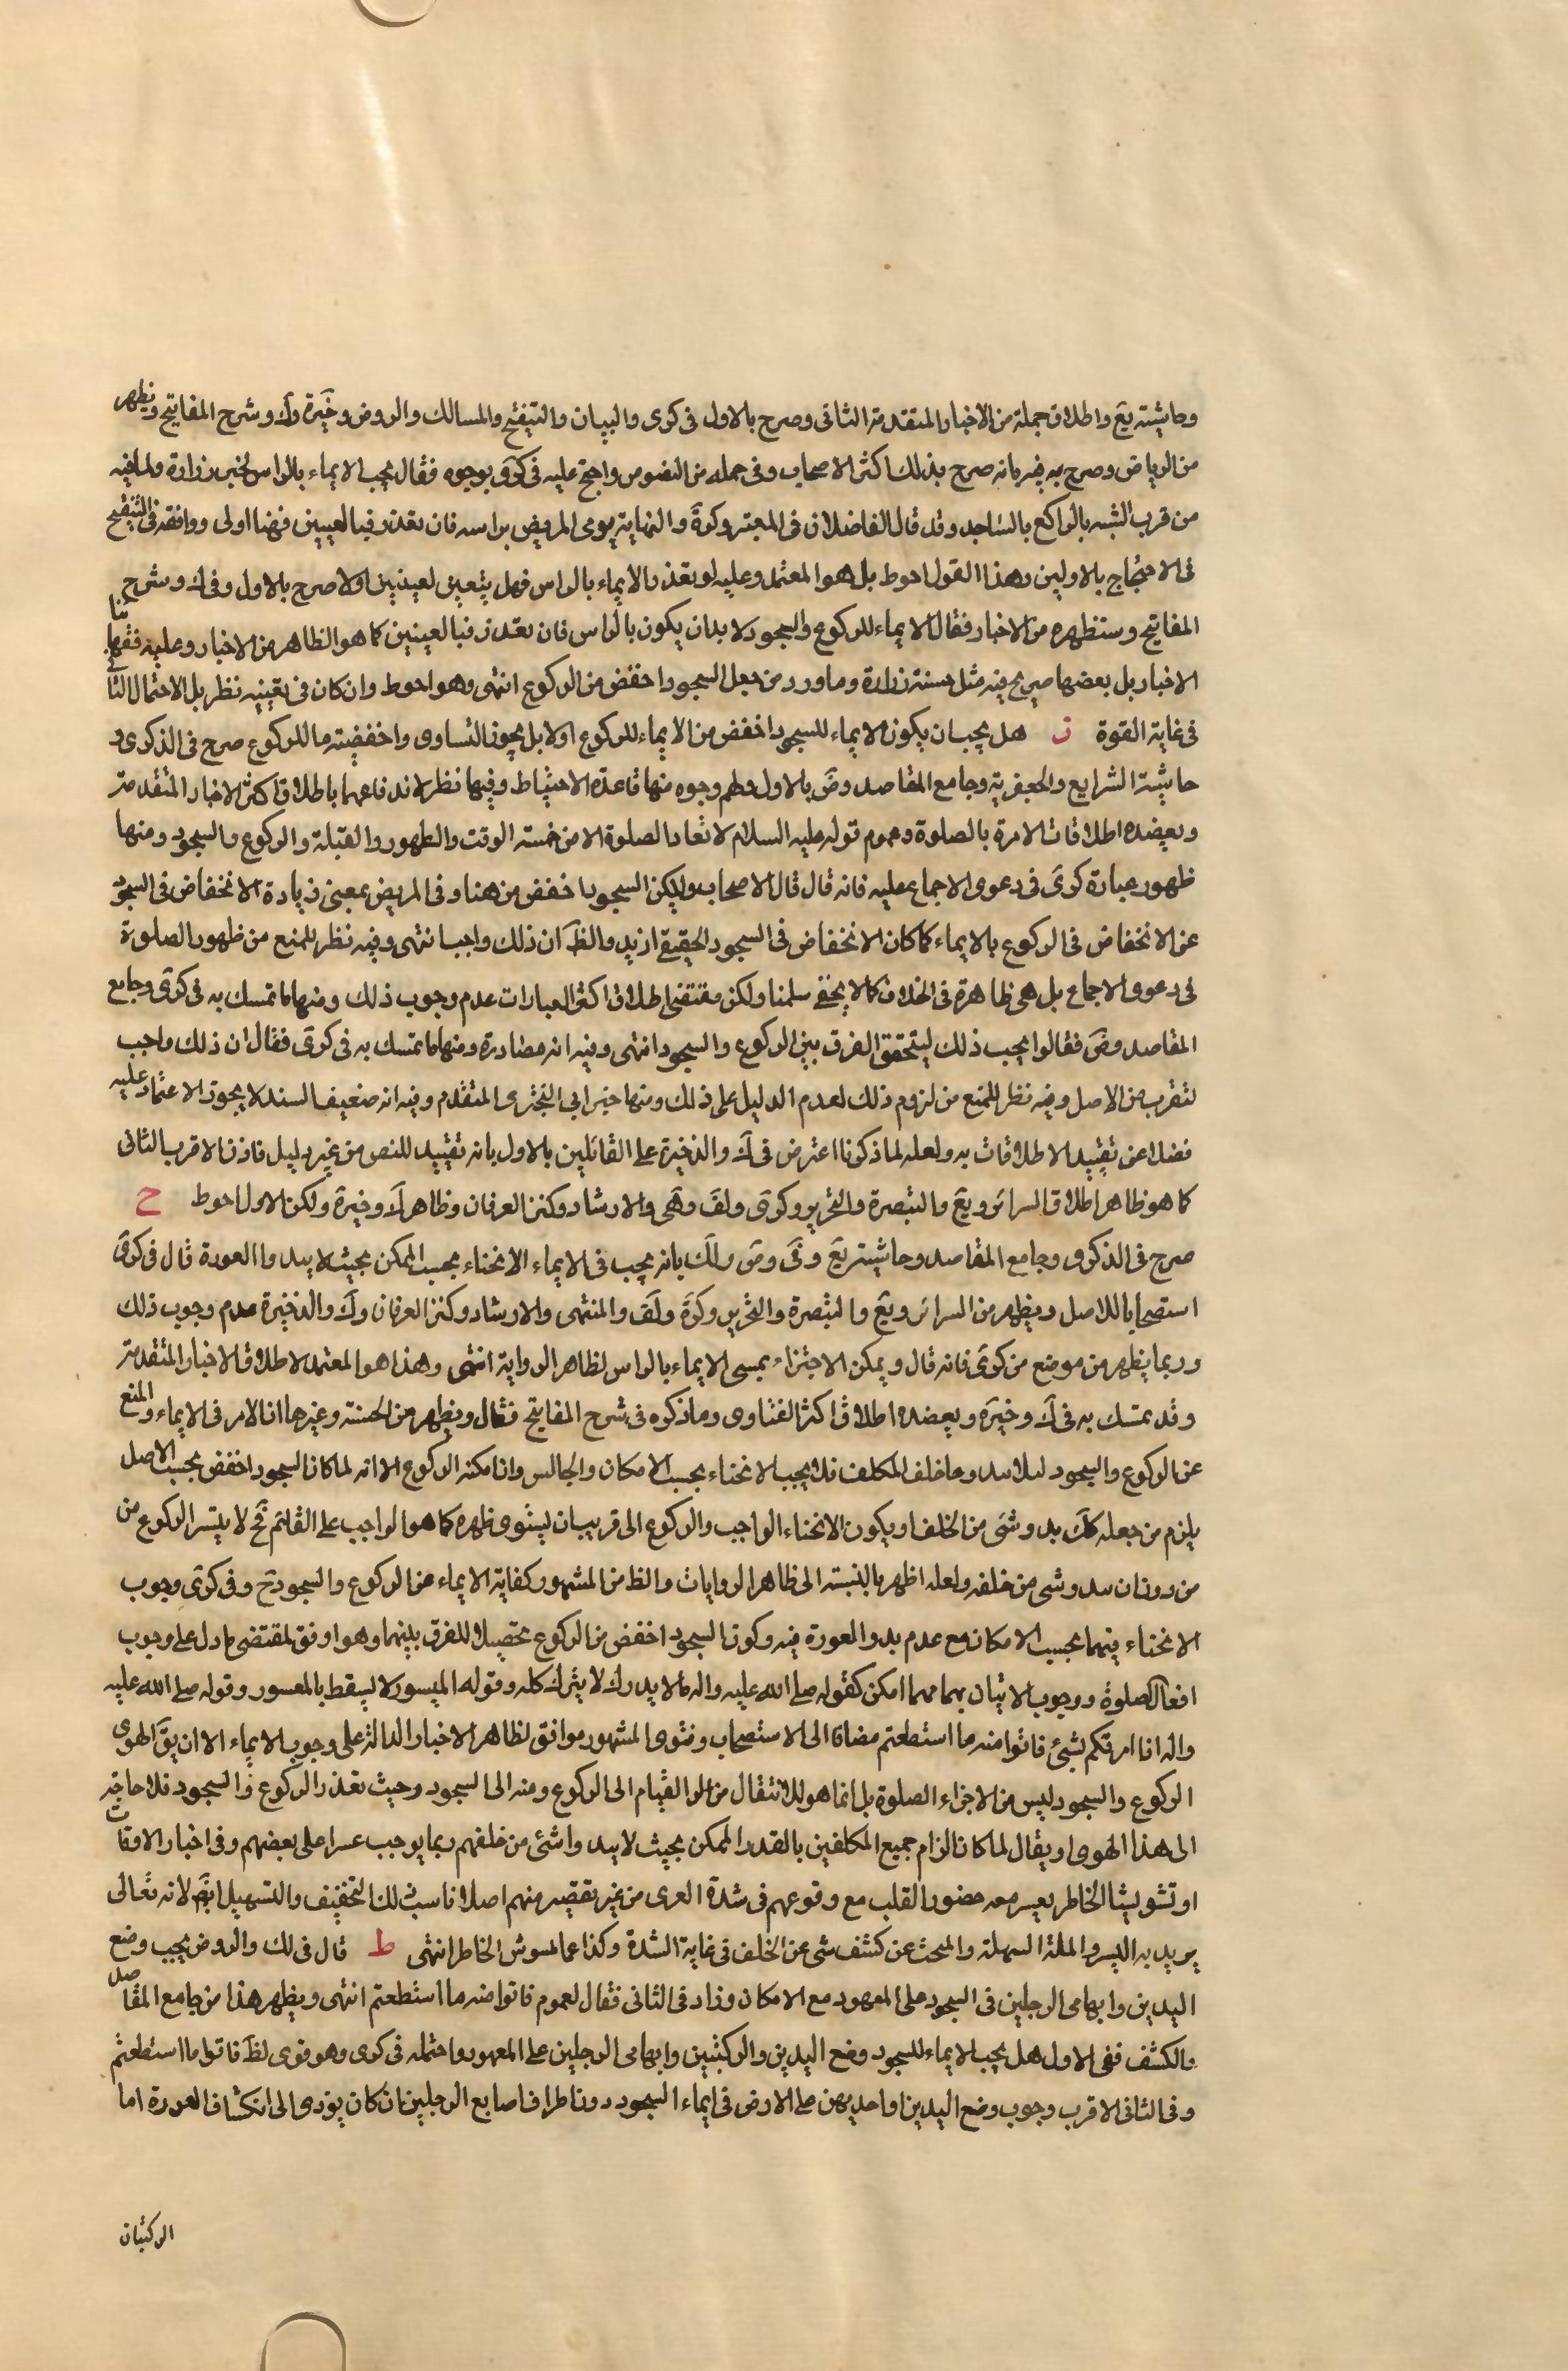 وحاشيته يع واطلاق جملة من الاخبار المتقدمة الثانى وصرح بالاول فى كرى والبيان والتنقيح والمسالك والروض وخيرة وك وشرح المفاتيح ويظهر
من الرياض وصرح به فيه بانه صرح بذلك اكثر الاصحاب وفى جمله من النصوص واحتج عليه فى كرى بوجوه فقال يجب الايماء بالراس لخبر زرارة ولما فيه
من قرب الشبه بالراكع بالساجد وقد قال الفاضلان فى المعتبر وكرة والنهاية يومى المريض براسه فان تعذر فبالعينين فهنا اولى ووافقه فى التنقيح
فى الاحتجاج بالاولين وهذا القول احوط بل هو المعتمد وعليه لو تعذر الايماء بالراس فهل يتعين لعينين اولا صرح بالاول وفى ك وشرح
المفاتيح وستظهره من الاخبار فقال الايماء للركوع والسجود لا بد ان يكون بالراس فان تعذر فبالعينين كما هو الظاهر من الاخبار وعليه فقهائنا
الاخبار بل بعضها صريح فيه مثل حسنة زرارة وما ورد من جعل السجود اخفض من الركوع انتهى وهو احوط وان كان فى تعيينه نظر بل الاحتمال الثانى
فى غاية القوة ز هل يجب ان يكون الايماء للسجود اخفض من الايماء للركوع اولا بل يجوز التساوى واخفضيته ما للركوع صرح فى الذكرى و
حاشية الشرايع والجعفرية وجامع المقاصد وض بالاول ولهم وجوه منها قاعدة الاحتياط وفيها نظر لاندفاعها باطلاق اكثر الاخبار المتقدمة
ويعضده اطلاقات الامرة بالصلوة وعموم قوله عليه السلام لا تعاد الصلوة الا من خمسة الوقت والطهور والقبلة والركوع والسجود ومنها
ظهور عبارة كرى فى دعوى الاجماع عليه فانه قال قال الاصحاب وليكن السجود اخفض من هنا وفى المريض بمعنى زيادة الانخفاض فى السجود
عن الانخفاض فى الركوع بالايماء كما كان الانخفاض فى السجود الحقيقى ازيد والظ ان ذلك واجب انتهى وفيه نظر للمنع من ظهور الصلوة
فى دعوى الاجماع بل هى ظاهرة فى الخلاف كما لا يخفى سلمنا ولكن مقتضى اطلاق اكثر العبارات عدم وجوب ذلك ومنها ما تمسك به فى كرى وجامع
المقاصد وض فقالوا يجب ذلك ليتحقق الفرق بين الركوع والسجود انتهى وفيه انه مصادرة ومنها ما تمسك به فى كرى فقال ان ذلك واجب
لتقرب من الاصل وفيه نظر للمنع من لزوم ذلك لعدم الدليل على ذلك ومنها خبر ابى البخترى المتقدم وفيه انه ضعيف السند لا يجوز الاعتماد عليه
فضلا عن تقييد الاطلاقات به ولعله لما ذكرنا اعترض فى ك والذخيرة على القائلين بالاول بانه تقييد للنص من غير دليل فاذن الاقرب الثانى
كما هو ظاهر اطلاق السرائر ويع والتبصرة والتحرير وكرى ولف وهى والارشاد وكنز العرفان وظاهر ك وخيرة ولكن الاول احوط ح
صرح فى الذكرى وجامع المقاصد وحاشيته يع وفى وض ولك بانه يجب فى الايماء الانحناء بحسب الممكن بحيث لا يبدوا العورة قال فى كرى
استصحابا للاصل ويظهر من السرائر ويع والتبصرة والتحرير وكرة ولف والمنتهى والارشاد وكنز العرفان وك والذخيرة عدم وجوب ذلك
وربما يظهر من موضع من كرى فانه قال ويمكن الاجتزاء بمسمى الايماء بالراس لظاهر الرواية انتهى وهذا هو المعتمد لاطلاق الاخبار المتقدمة
وقد تمسك به فى ك وخيرة ويعضده اطلاق اكثر الفتاوى وما ذكره فى شرح المفاتيح فقال ويظهر من الحسنة وغيرها ان الامر فى الايماء والمنع
عن الركوع والسجود لئلا يبدو ما خلف المكلف فلا يجب الانحناء بحسب الامكان والجالس وان امكنه الركوع الا انه لما كان السجود اخفض بحسب الاصل
يلزم من جعله كك بدو شئ من الخلف او يكون الانحناء الواجب والركوع الى قريب ان يستوى ظهره كما هو الواجب على القائم فح لا يتيسر الركوع من
من دون ان يبدو شى من خلفه ولعله اظهر بالنسبة الى ظاهر الروايات والظ من المشهور كفاية الايماء عن الركوع والسجود ح وفى كرى وجوب
الانحناء فيهما بحسب الامكان مع عدم بدو العورة فيه وكون السجود اخفض من الركوع تحصيلا للفرق بينهما وهو اوفق لمقتضى ما دل على وجوب
افعال الصلوة ووجوب الاتيان بهما مهما امكن كقوله صلى الله عليه واله ما لا يدرك لا يترك كله وقوله الميسور لا يسقط بالمعسور وقوله صلى الله عليه
واله اذا امرتكم بشئ فاتوا منه ما استطعتم مضافا الى الاستصحاب وفتوى المشهور موافق لظاهر الاخبار الدالة على وجوب الايماء الا ان يق الهوى
الركوع والسجود ليس من الاجزاء الصلوة بل انما هو للانتقال من القيام الى الركوع ومنه الى السجود وحيث تعذر الركوع والسجود فلا حاجة
الى هذا الهوى او يقال لما كان الزام جميع المكلفين بالقدر الممكن بحيث لا يبدوا شئ من خلفهم ربما يوجب عسرا على بعضهم وفى اخبار الاوقات
او تشويشا الخاطر يعسر معه حضور القلب مع وقوعهم فى شدة العرى من غير تقصير منهم اصلا ناسب ذلك التخفيف والتسهيل ايضا لانه تعالى
يريد به اليسر والملة السهلة والبحث عن كشف شى عن الخلف فى غاية الشدة وكذا عما لمسوش الخاطر انتهى ط قال فى لك والروض يجب وضع
اليدين وابهامى الرجلين فى السجود على المعهود مع الامكان وزاد فى الثانى فقال لعموم فاتوا منه ما استطعتم انتهى ويظهر هذا من جامع المقاصد
والكشف ففى الاول هل يجب الايماء للسجود وضع اليدين والركبتين وابهامى الرجلين على المعهود واحتمله فى كرى وهو قوى لظ فاتوا ما استطعتم
وفى الثانى الاقرب وجوب وضع اليدين او احديهن على الارض فى ايماء السجود دون اطراف اصابع الرجلين ان كان يؤدى الى انكشاف العورة اما
الركبتان